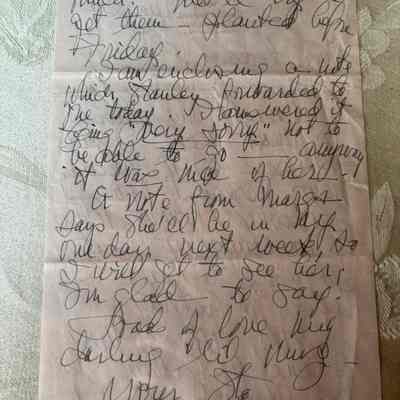 get them planted before
Friday.
I am enclosing a note
which Stanley forwarded to
me today. I answered it
being "very sorry" not to
be able to go — anyway
it was nice of her.
A note from Margo
says she'll be in N.Y.
one day next week so
I will get to see her,
I'm glad to say.
Loads of love my
darling
Your